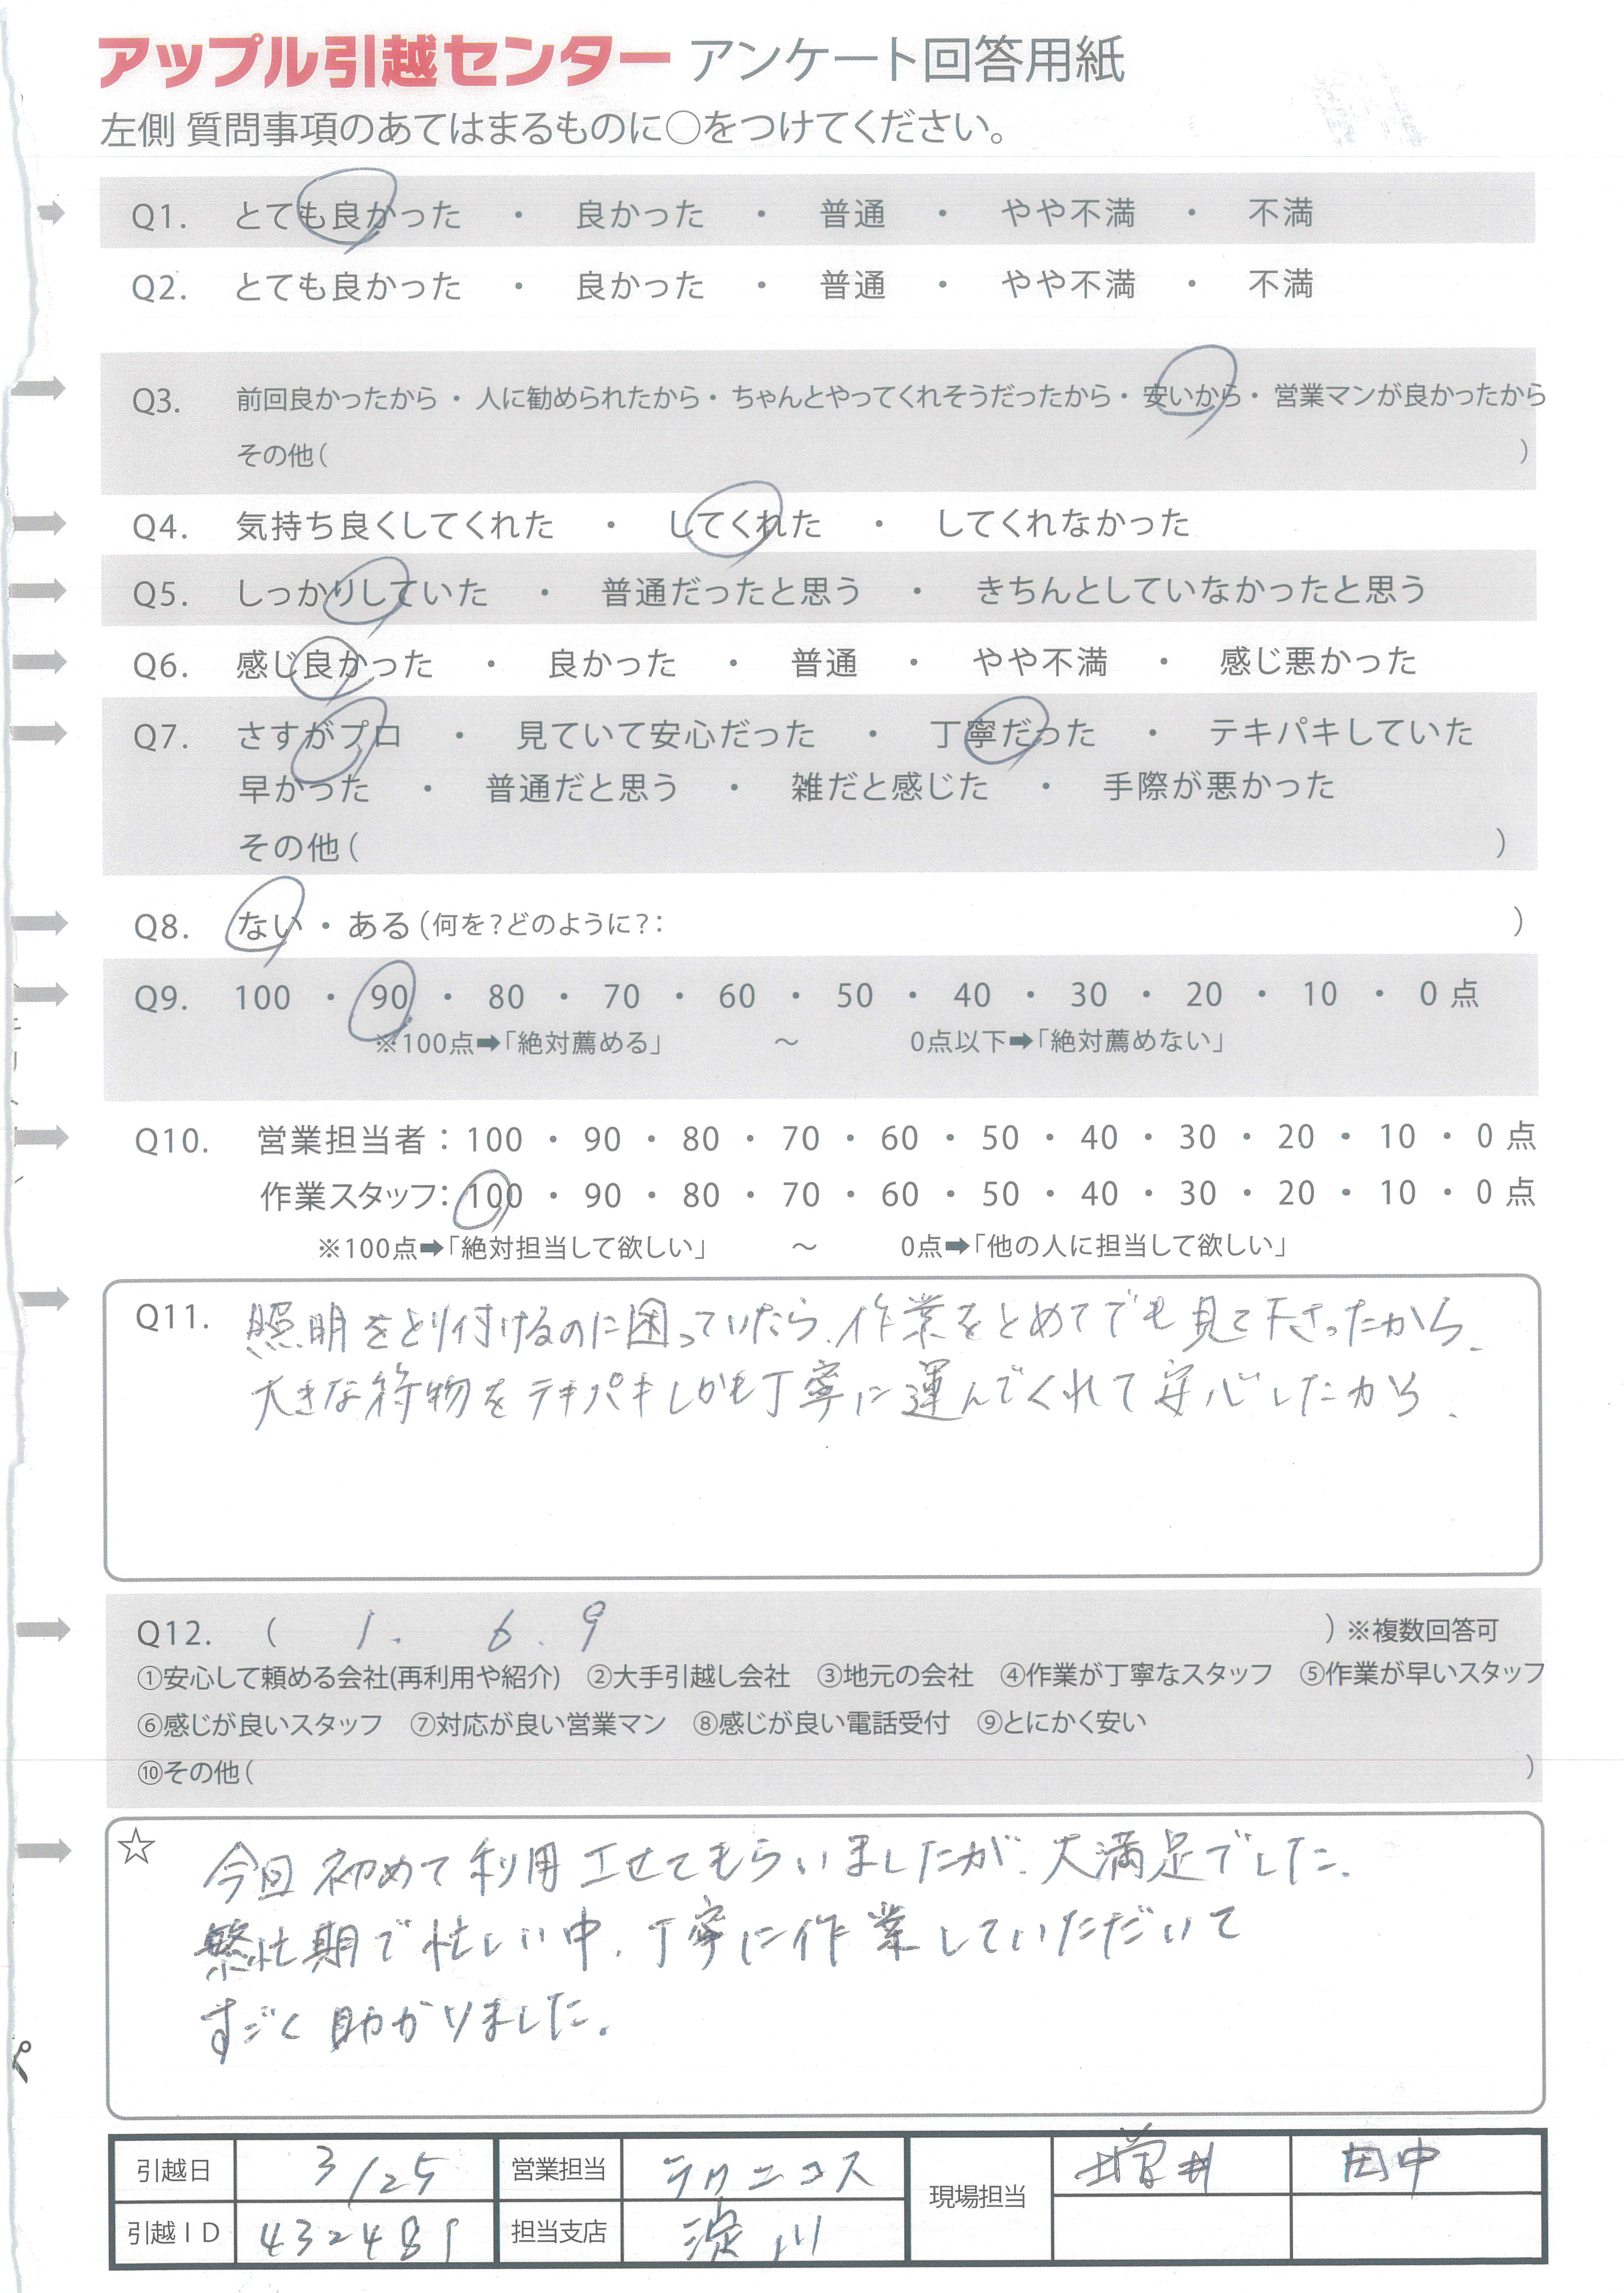 アップル引越センター アンケート回答用紙
左側 質問事項のあてはまるものに○をつけてください。
Q1. とても良かった ・ 良かった ・ 普通 ・ やや不満 ・ 不満
Q2. とても良かった ・ 良かった ・ 普通 ・ やや不満 ・ 不満
Q3. 前回良かったから ・ 人に勧められたから ・ ちゃんとやってくれそうだったから ・ 安いから ・ 営業マンが良かったから
その他( )
Q4. 気持ち良くしてくれた ・ してくれた ・ してくれなかった
Q5. しっかりしていた ・ 普通だったと思う ・ きちんとしていなかったと思う
Q6. 感じ良かった ・ 良かった ・ 普通 ・ やや不満 ・ 感じ悪かった
Q7. さすがプロ ・ 見ていて安心だった ・ 丁寧だった ・ テキパキしていた
早かった ・ 普通だと思う ・ 雑だと感じた ・ 手際が悪かった
その他( )
Q8. ない ・ ある(何を?どのように?: )
Q9. 100 ・ 90 ・ 80 ・ 70 ・ 60 ・ 50 ・ 40 ・ 30 ・ 20 ・ 10 ・ 0 点
※100点➡「絶対薦める」 ～ 0点以下➡「絶対薦めない」
Q10. 営業担当者: 100 ・ 90 ・ 80 ・ 70 ・ 60 ・ 50 ・ 40 ・ 30 ・ 20 ・ 10 ・ 0 点
作業スタッフ: 100 ・ 90 ・ 80 ・ 70 ・ 60 ・ 50 ・ 40 ・ 30 ・ 20 ・ 10 ・ 0 点
※100点➡「絶対担当して欲しい」 ～ 0点➡「他の人に担当して欲しい」
Q11. 照明をとり付けるのに困っていたら、作業をとめてでも見て下さったから、
大きな荷物をテキパキしかも丁寧に運んでくれて安心したから.
Q12. ( 1. 6. 9 ) ※複数回答可
①安心して頼める会社(再利用や紹介) ②大手引越し会社 ③地元の会社 ④作業が丁寧なスタッフ ⑤作業が早いスタッフ
⑥感じが良いスタッフ ⑦対応が良い営業マン ⑧感じが良い電話受付 ⑨とにかく安い
⑩その他( )
☆ 今回初めて利用させてもらいましたが、大満足でした.
繁忙期で忙しい中、丁寧に作業していただいて
すごく助かりました.
引越日 3/25 営業担当 現場担当 増井 田中
引越ID 432489 担当支店 淀川